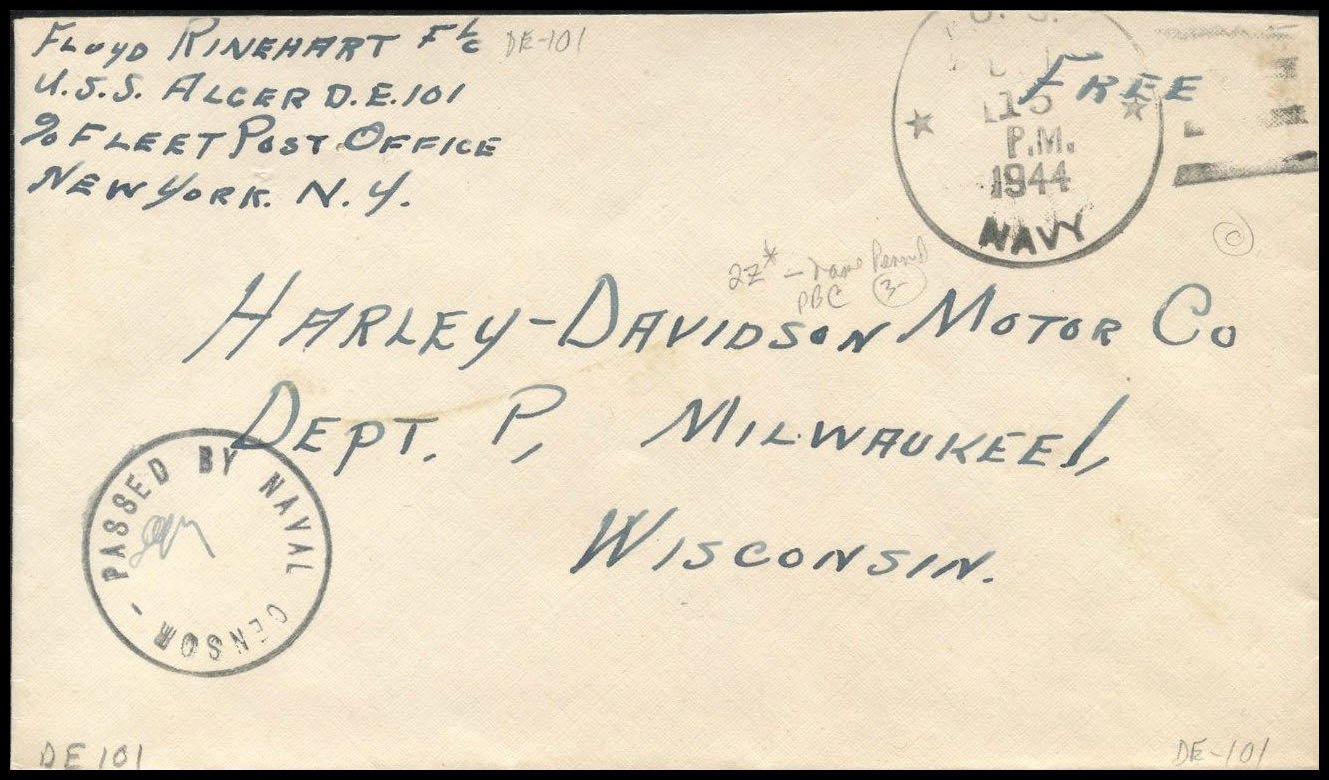 FLOYD RINEHART F1/c DE-101
U.S.S. ALGER D.E.101
℅ FLEET POST OFFICE
NEW YORK. N.Y.
U. S.
15
P.M.
1944
NAVY
FREE
2Z* - rare Period
PBC 3-
C
HARLEY-DAVIDSON MOTOR CO
DEPT. P, MILWAUKEE 1,
WISCONSIN.
PASSED BY NAVAL CENSOR -
DE 101
DE-101